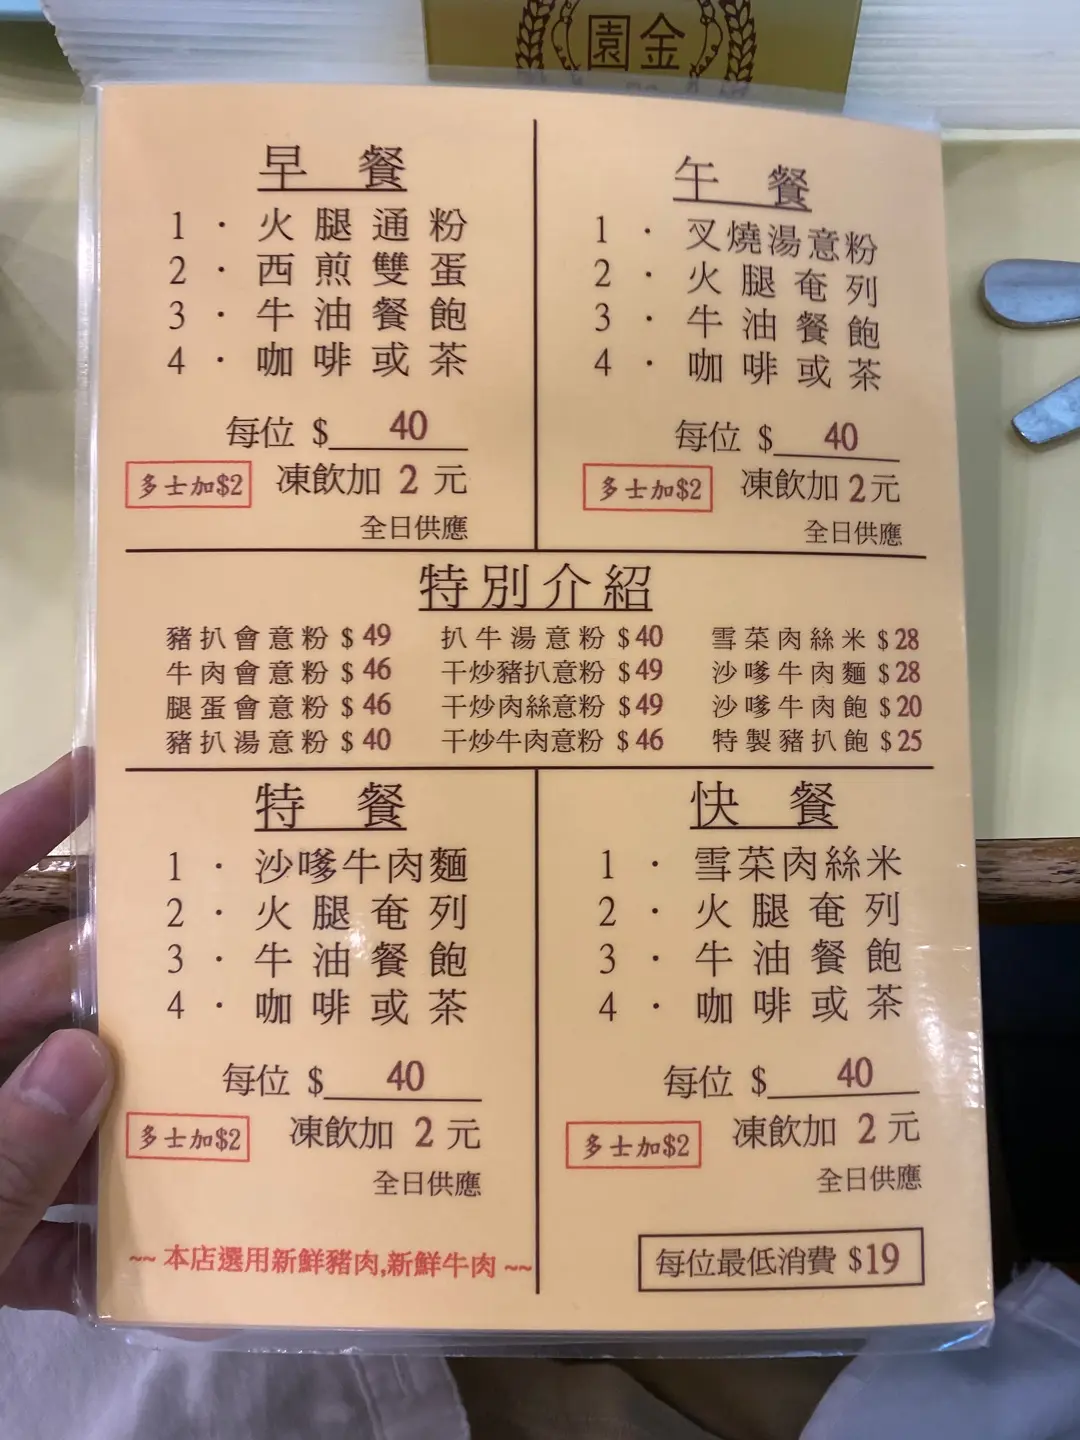 園金
早餐
1．火腿通粉
2．西煎雙蛋
3．牛油餐飽
4．咖啡或茶
每位 $ 40
多士加$2 凍飲加 2 元
全日供應
午餐
1．叉燒湯意粉
2．火腿奄列
3．牛油餐飽
4．咖啡或茶
每位 $ 40
多士加$2 凍飲加 2 元
全日供應
特別介紹
豬扒會意粉 $ 49 扒牛湯意粉 $ 40 雪菜肉絲米 $ 28
牛肉會意粉 $ 46 干炒豬扒意粉 $ 49 沙嗲牛肉麵 $ 28
腿蛋會意粉 $ 46 干炒肉絲意粉 $ 49 沙嗲牛肉飽 $ 20
豬扒湯意粉 $ 40 干炒牛肉意粉 $ 46 特製豬扒飽 $ 25
特餐
1．沙嗲牛肉麵
2．火腿奄列
3．牛油餐飽
4．咖啡或茶
每位 $ 40
多士加$2 凍飲加 2 元
全日供應
~~ 本店選用新鮮豬肉,新鮮牛肉 ~~
快餐
1．雪菜肉絲米
2．火腿奄列
3．牛油餐飽
4．咖啡或茶
每位 $ 40
多士加$2 凍飲加 2 元
全日供應
每位最低消費 $19